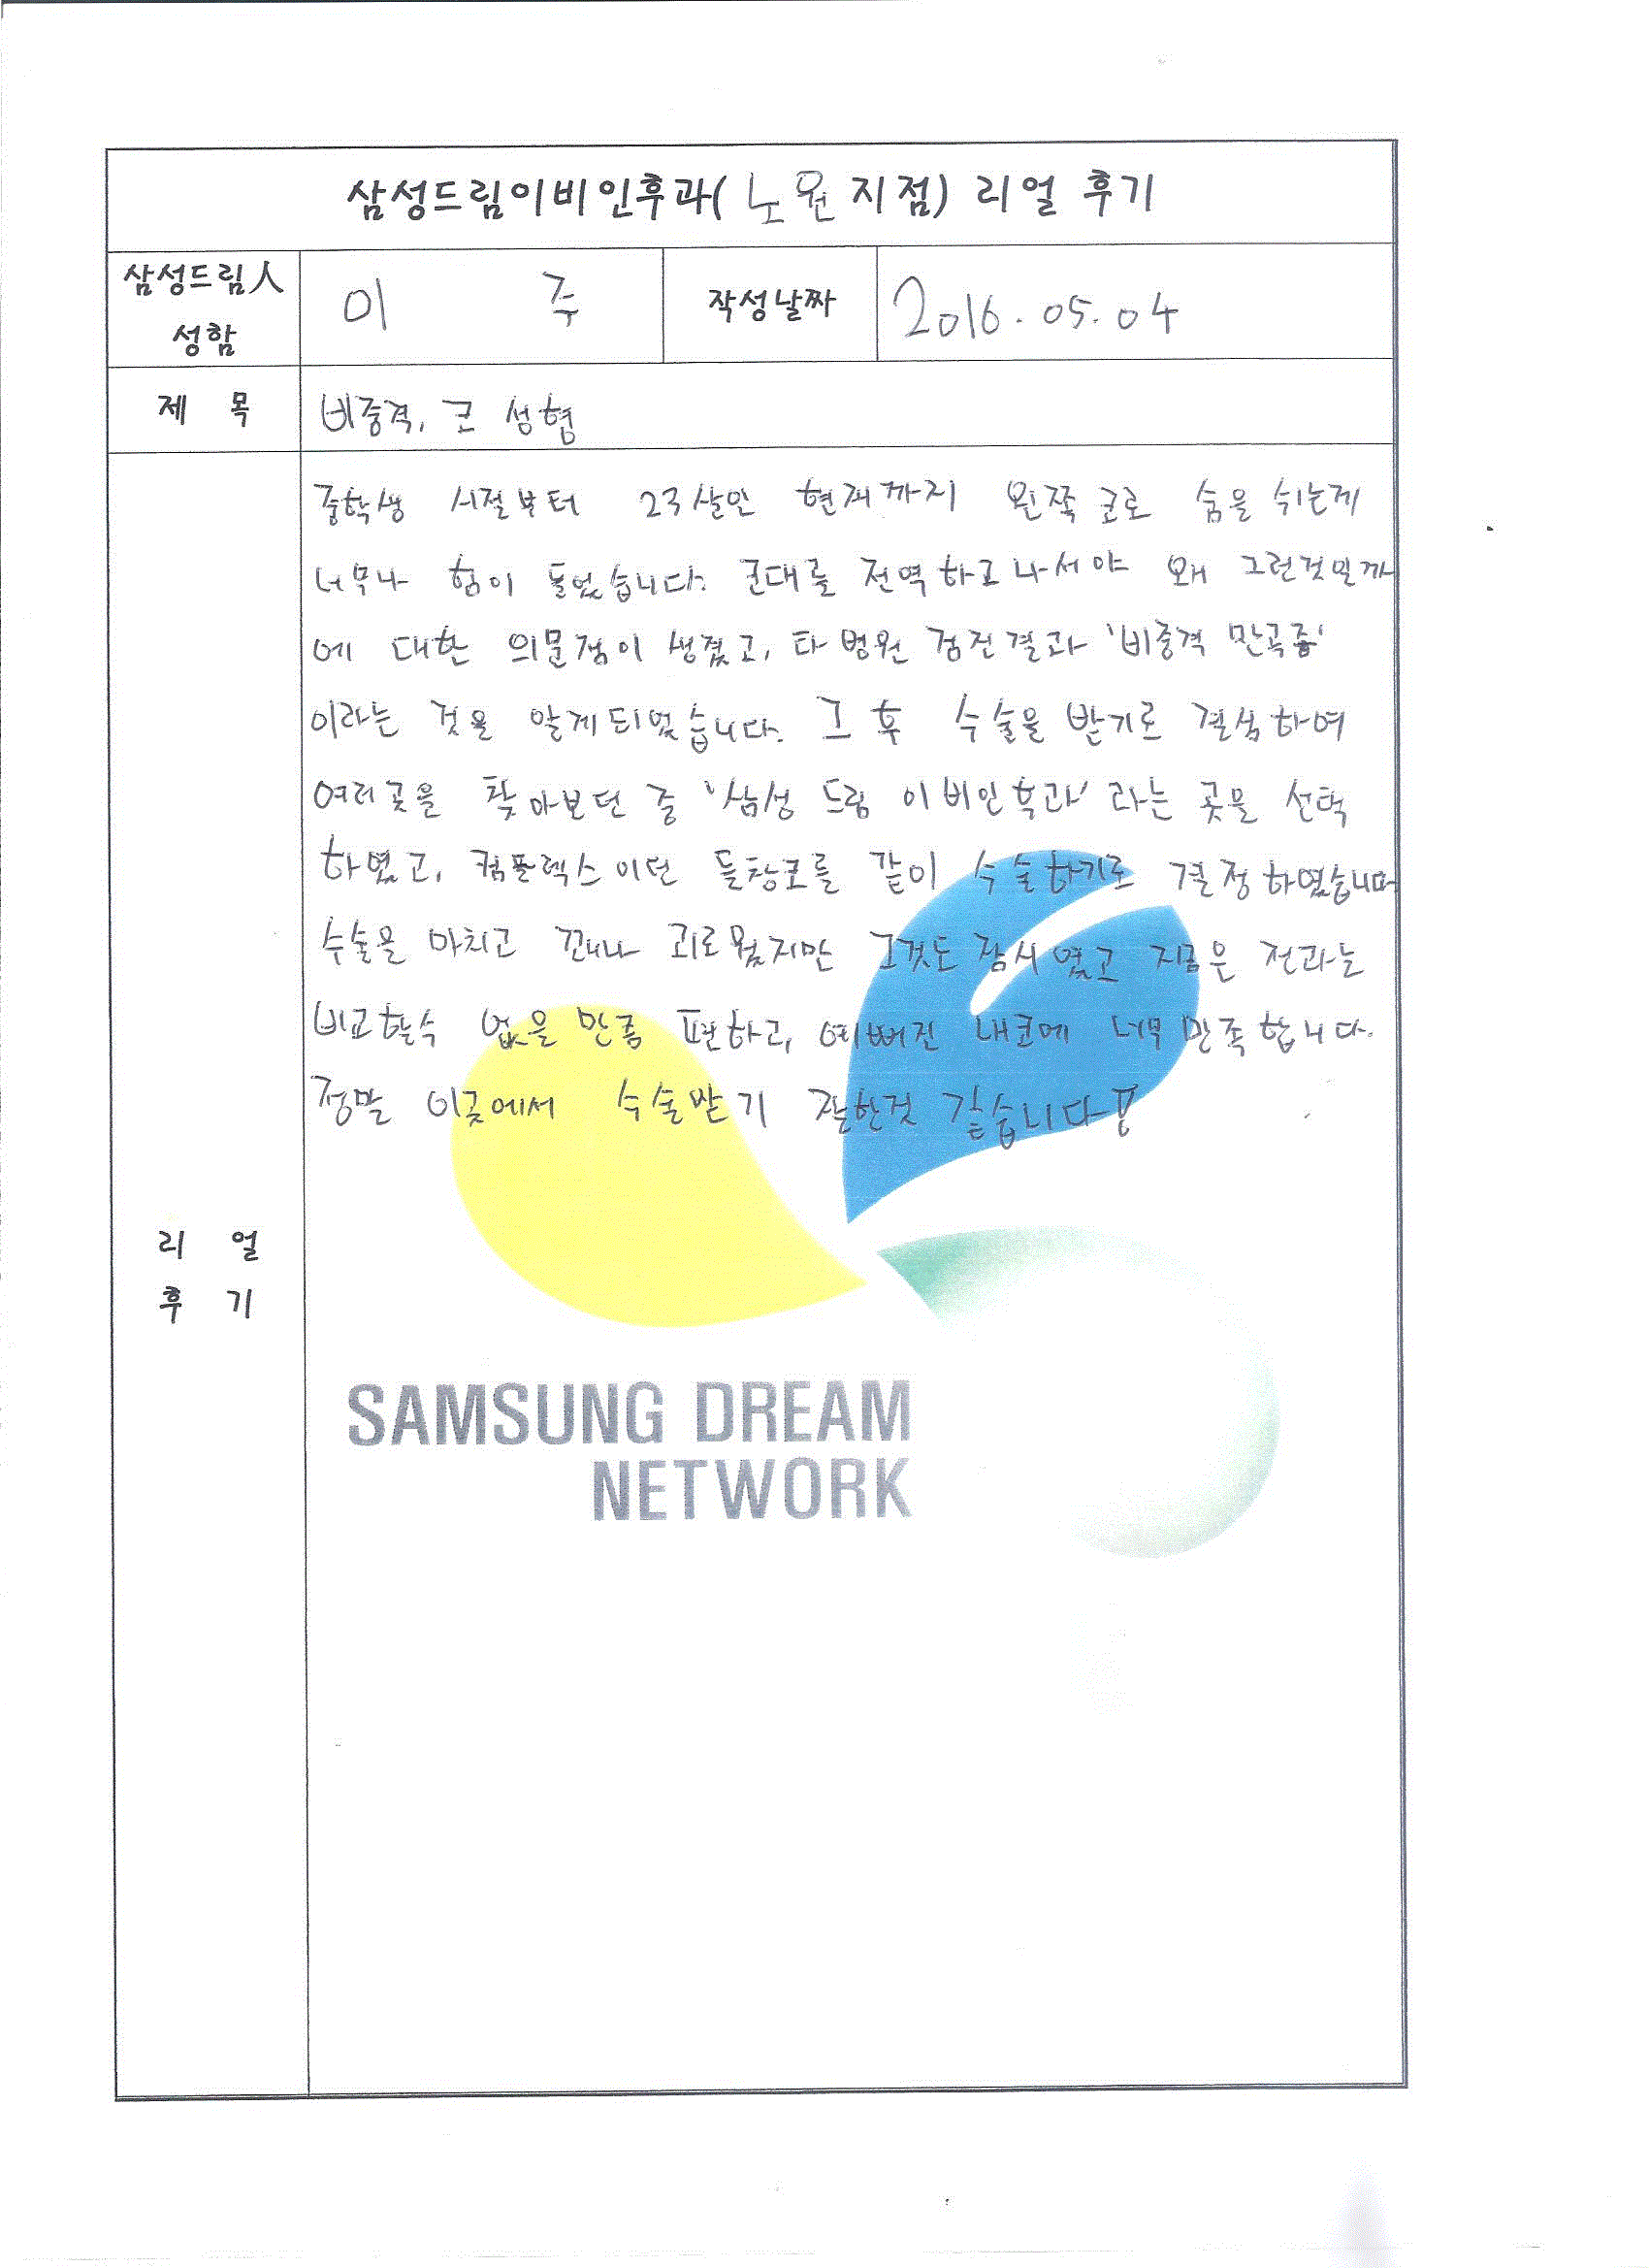 삼성드림이비인후과( 노원 지점) 리얼 후기
삼성드림人
성함
이 주
작성날짜
2016.05.04
제 목
비중격, 코 성형
중학생 시절부터 23살인 현재까지 왼쪽 코로 숨을 쉬는게
너무나 힘이 들었습니다. 군대를 전역하고 나서야 왜 그런것일까
에 대한 의문점이 생겼고, 타 병원 검진결과 '비중격 만곡증'
이라는 것을 알게되었습니다. 그 후 수술을 받기로 결심하여
여러곳을 찾아보던 중 '삼성 드림 이비인후과' 라는 곳을 선택
하였고, 컴플렉스이던 들창코를 같이 수술하기로 결정하였습니다
수술을 마치고 꽤나 괴로웠지만 그것도 잠시였고 지금은 전과는
비교할수 없을 만큼 편하고, 예뻐진 내코에 너무 만족합니다.
정말 이곳에서 수술받기 잘한것 같습니다!
리 얼
후 기
SAMSUNG DREAM
NETWORK